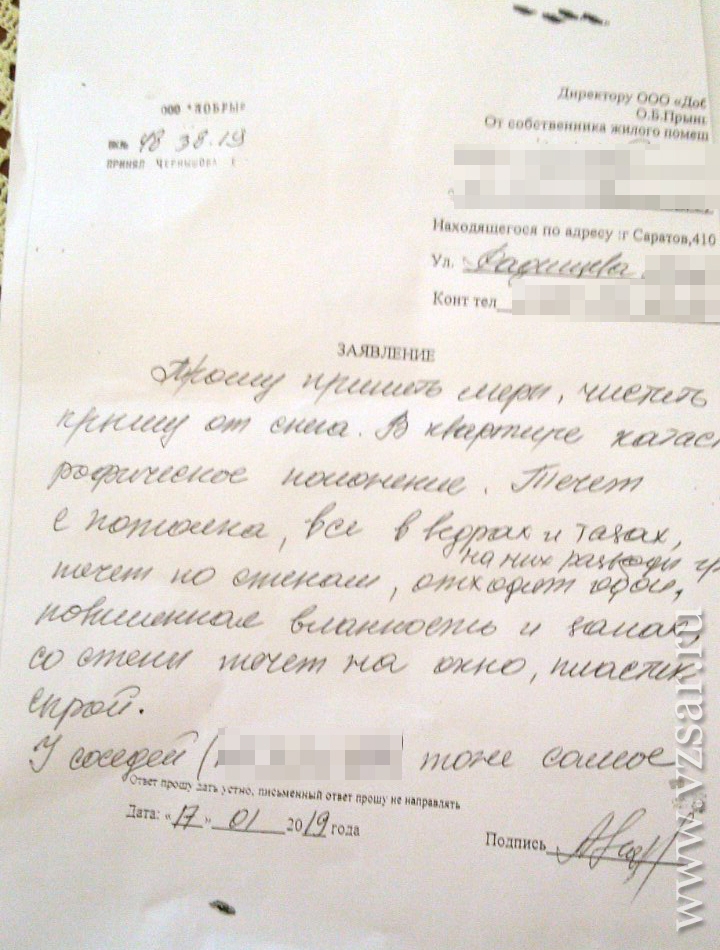 ООО "ДОБРЫ
вх№ 48 38.19
ПРИНЯЛ ЧЕРНЫШОВА
Директору ООО «Доб
О.Б.Прын
От собственника жилого помещ
Находящегося по адресу :г Саратов,410
Ул. Радищева
Конт тел
ЗАЯВЛЕНИЕ
Прошу принять меры, чистить
крышу от снега. В квартире катаст
рофическое положение. Течет
с потолка, все в ведрах и тазах,
на них разводы
течет по стенам, отходят обои,
повышенная влажность и запах,
со стены течет на окно, пластик
сырой.
У соседей ( тоже самое
Ответ прошу дать устно, письменный ответ прошу не направлять
Дата: «17» 01 2019 года
Подпись
www.vzsar.ru